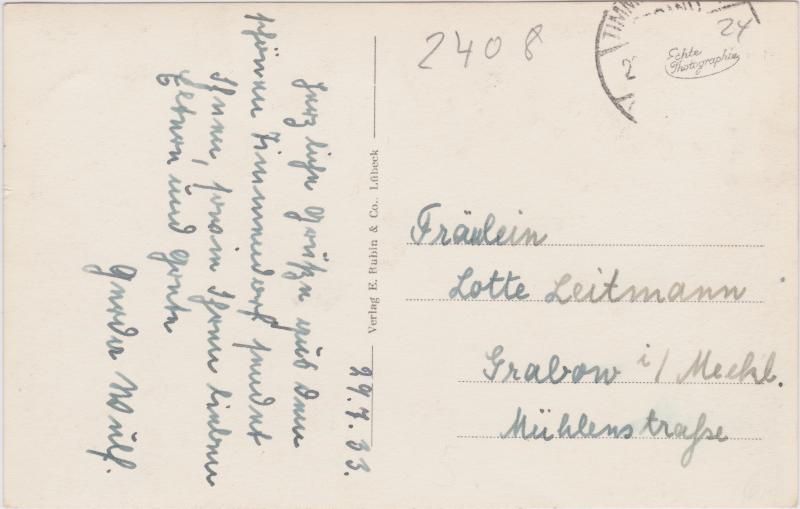 29.7.33.
Herzliche Grüße aus dem
schönen Timmendorf sendet
Ihnen, sowie Ihren lieben
und Grete
Wulf.
Verlag E. Rubin & Co., Lübeck
2408
TIMM
2
24
Echte
Photographie
Fräulein
Lotte Leitmann
Grabow i/Meckl.
Mühlenstraße